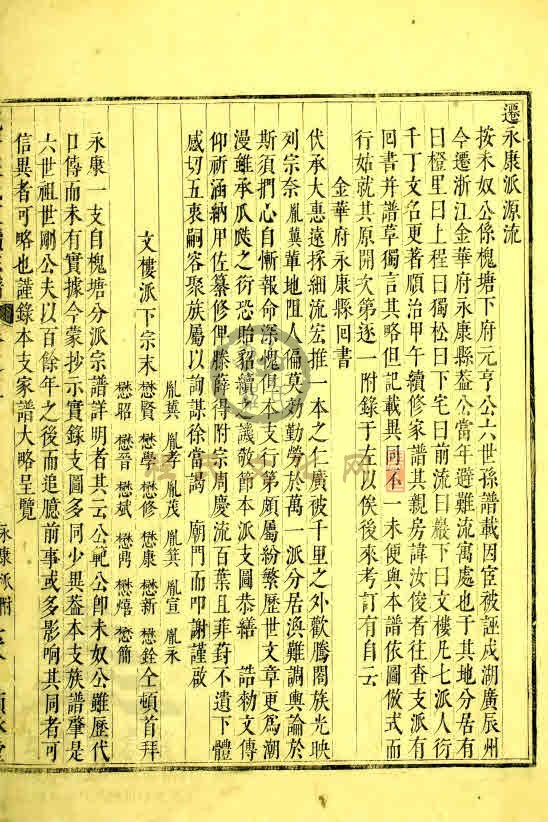 遷永康派源流
按未奴公係槐塘下府元亨公六世孫譜載因宦被誣戍湖廣辰州
今遷浙江金華府永康縣葢公當年避難流寓處也于其地分居有
曰橙里曰上程曰獨松曰下宅曰前流曰巖下曰文樓凡七派人衍
千丁文名更著順治甲午續修家譜其親房諱汝俊者往查支派有
回書并譜草獨言其略但記載異同不一未便與本譜依圖倣式而
行姑就其原開次第逐一附錄于左以俟後來考訂有自云
金華府永康縣回書
伏承大惠遠採細流宏推一本之仁廣被千里之外歡騰閤族光映
列宗奈胤冀軰地阻人偏莫効勤勞於萬一派分居渙難調輿論於
斯須捫心自慚報命深愧但本支行第頗屬紛繁歷世文章更爲潮
漫雖承瓜瓞之衍恐貽貂續之譏敬節本派支圖恭繕誥勑文傳
仰祈涵納用佐纂修俾滕薛得附宗周慶流百葉且菲葑不遺下體
感切五衷嗣容聚族屬以詢謀徐當謁廟門而叩謝謹啟
胤冀 胤孝 胤茂 胤箕 胤宣 胤永
文樓派下宗末 懋賢 懋學 懋修 懋康 懋新 懋銓 仝頓首拜
懋昭 懋晉 懋斌 懋禼 懋熺 懋簡
永康一支自槐塘分派宗譜詳明者其云公範公卽未奴公雖歷代
口傳而未有實據今蒙抄示實錄支圖多同少異葢本支族譜肇是
六世祖世剛公夫以百餘年之後而追憶前事或多影响其同者可
信異者可略也謹錄本支家譜大略呈覽
永康派附